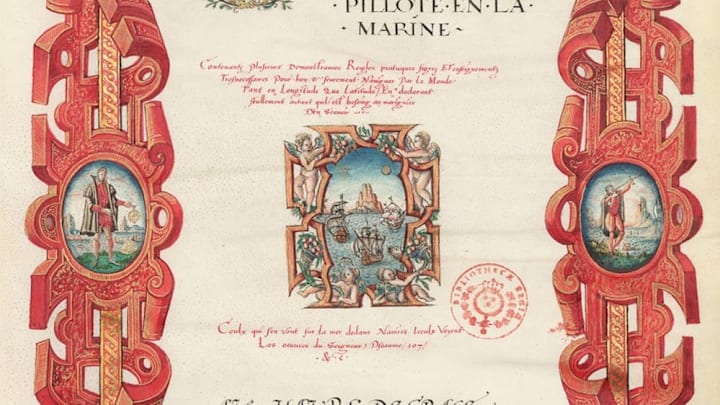 ·PILLOTE·EN·LA·
·MARINE·
Contenantz Plusieurs Demonstrances Reigles pratiques segrez Et enseignementz
Tresnecessaires Pour bien & seurement Naviguer Par le Monde
Tant en Longitude Que Latitude/ En declarant
seullement autant quil est besoing en marynier
Den scavoir
BIBLIOTHECÆ REGIÆ
Ceulx qui s'en vont sur la mer dedans Navires Iceulx Voyent
Les oeuvres du Seigneur/ Pseaume/ 107/
·&c·